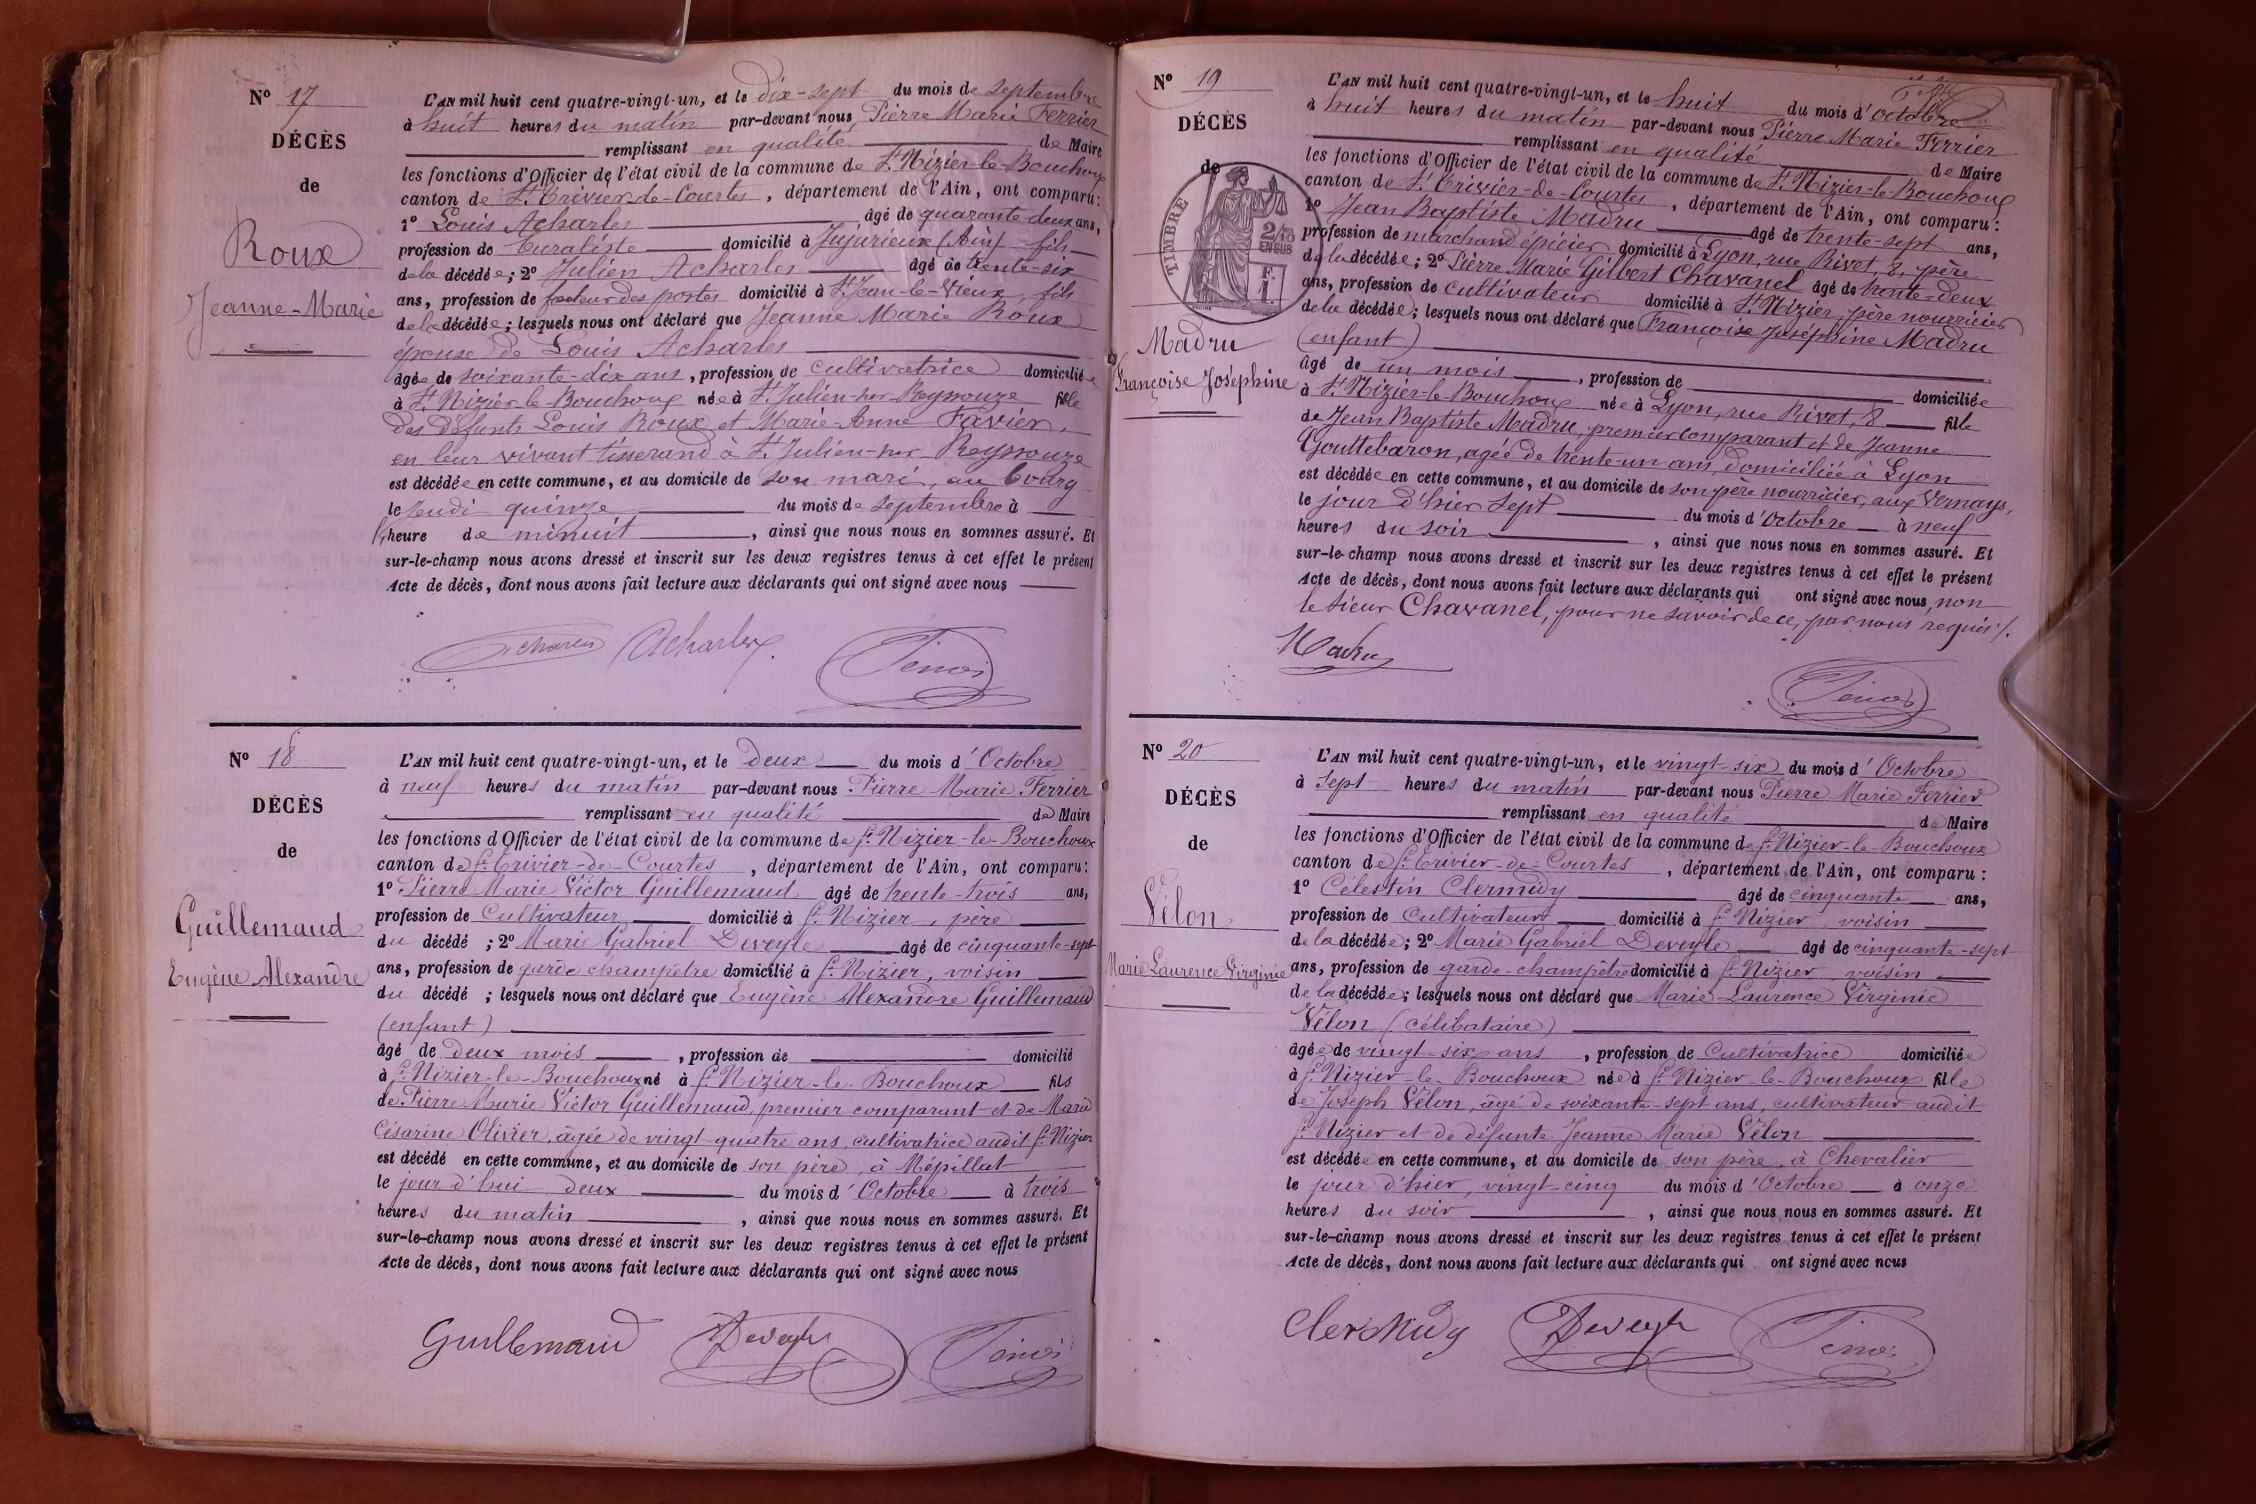 Nº 17
DÉCÈS
de
Roux
Jeanne-Marie
L'AN mil huit cent quatre-vingt-un, et le dix-sept du mois de septembre
à huit heures du matin par-devant nous Pierre Marie Ferrier
remplissant en qualité de Maire
les fonctions d'Officier de l'état civil de la commune de St Nizier-le-Bouchoux
canton de St Trivier-de-Courtes, département de l'Ain, ont comparu:
1º Louis Acharles âgé de quarante-deux ans,
profession de buraliste domicilié à Jujurieux (Ain) fils
de la décédée; 2º Julien Acharles âgé de trente-six
ans, profession de facteur des postes domicilié à St Jean-le-Vieux, fils
de la décédée; lesquels nous ont déclaré que Jeanne Marie Roux
épouse de Louis Acharles
âgée de soixante-dix ans, profession de cultivatrice domiciliée
à St Nizier-le-Bouchoux née à St Julien-sur-Reyssouze fille
des défunts Louis Roux et Marie-Anne Favier,
en leur vivant tisserand à St Julien-sur-Reyssouze
est décédée en cette commune, et au domicile de son mari, au bourg
le Jeudi quinze du mois de septembre à
heure de minuit, ainsi que nous nous en sommes assuré. Et
sur-le-champ nous avons dressé et inscrit sur les deux registres tenus à cet effet le présent
Acte de décès, dont nous avons fait lecture aux déclarants qui ont signé avec nous
Acharles Acharles
Nº 18
DÉCÈS
de
Guillemaud
Eugène Alexandre
L'AN mil huit cent quatre-vingt-un, et le deux du mois d'Octobre
à neuf heures du matin par-devant nous Pierre Marie Ferrier
remplissant en qualité de Maire
les fonctions d'Officier de l'état civil de la commune de St Nizier-le-Bouchoux
canton de St Trivier-de-Courtes, département de l'Ain, ont comparu:
1º Pierre Marie Victor Guillemaud âgé de trente-trois ans,
profession de Cultivateur domicilié à St Nizier, père
du décédé; 2º Marie Gabriel Deveyle âgé de cinquante-sept
ans, profession de garde champêtre domicilié à St Nizier, voisin
du décédé; lesquels nous ont déclaré que Eugène Alexandre Guillemaud
(enfant)
âgé de deux mois, profession de domicilié
à St Nizier-le-Bouchoux né à St Nizier-le-Bouchoux fils
de Pierre Marie Victor Guillemaud, premier comparant et de Marie
Césarine Olivier, âgée de vingt-quatre ans, cultivatrice audit St Nizier
est décédé en cette commune, et au domicile de son père, à Mépillat
le jour d'hui deux du mois d'Octobre à trois
heures du matin, ainsi que nous nous en sommes assuré. Et
sur-le-champ nous avons dressé et inscrit sur les deux registres tenus à cet effet le présent
Acte de décès, dont nous avons fait lecture aux déclarants qui ont signé avec nous
Guillemaud Deveyle
Nº 19
DÉCÈS
de
TIMBRE
EN SUS
Madru
Françoise Joséphine
L'AN mil huit cent quatre-vingt-un, et le huit du mois d'octobre
à huit heures du matin par-devant nous Pierre Marie Ferrier
remplissant en qualité de Maire
les fonctions d'Officier de l'état civil de la commune de St Nizier-le-Bouchoux
canton de St Trivier-de-Courtes, département de l'Ain, ont comparu:
1º Jean Baptiste Madru âgé de trente-sept ans,
profession de marchand épicier domicilié à Lyon, rue Rivet, 8, père
de la décédée; 2º Pierre Marie Gilbert Chavanel âgé de trente-deux
ans, profession de cultivateur domicilié à St Nizier, père nourricier
de la décédée; lesquels nous ont déclaré que Françoise Joséphine Madru
(enfant)
âgé de un mois, profession de domiciliée
à St Nizier-le-Bouchoux née à Lyon, rue Rivet, 8 fille
de Jean Baptiste Madru, premier comparant et de Jeanne
Gouttebaron, agée de trente-un ans, domiciliée à Lyon
est décédée en cette commune, et au domicile de son père nourricier, aux Vernays,
le jour d'hier sept du mois d'Octobre à neuf
heures du soir, ainsi que nous nous en sommes assuré. Et
sur-le-champ nous avons dressé et inscrit sur les deux registres tenus à cet effet le présent
Acte de décès, dont nous avons fait lecture aux déclarants qui ont signé avec nous, non
le sieur Chavanel, pour ne savoir de ce, par nous requis /.
Madru
Nº 20
DÉCÈS
de
Vélon
Marie Laurence Virginie
L'AN mil huit cent quatre-vingt-un, et le vingt-six du mois d'Octobre
à sept heures du matin par-devant nous Pierre Marie Ferrier
remplissant en qualité de Maire
les fonctions d'Officier de l'état civil de la commune de St Nizier-le-Bouchoux
canton de St Trivier-de-Courtes, département de l'Ain, ont comparu:
1º Célestin Clermidy âgé de cinquante ans,
profession de Cultivateur domicilié à St Nizier, voisin
de la décédée; 2º Marie Gabriel Deveyle âgé de cinquante-sept
ans, profession de garde-champêtre domicilié à St Nizier, voisin
de la décédée; lesquels nous ont déclaré que Marie Laurence Virginie
Vélon (célibataire)
âgée de vingt-six ans, profession de Cultivatrice domiciliée
à St Nizier-le-Bouchoux née à St Nizier-le-Bouchoux fille
de Joseph Vélon, âgé de soixante-sept ans, cultivateur audit
St Nizier et de défunte Jeanne Marie Vélon
est décédée en cette commune, et au domicile de son père, à Chevalier
le jour d'hier, vingt-cinq du mois d'Octobre à onze
heures du soir, ainsi que nous nous en sommes assuré. Et
sur-le-champ nous avons dressé et inscrit sur les deux registres tenus à cet effet le présent
Acte de décès, dont nous avons fait lecture aux déclarants qui ont signé avec nous
Clermidy Deveyle